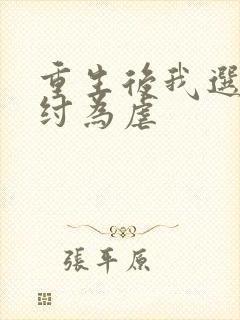 重生後我選
紂為虐
張平原